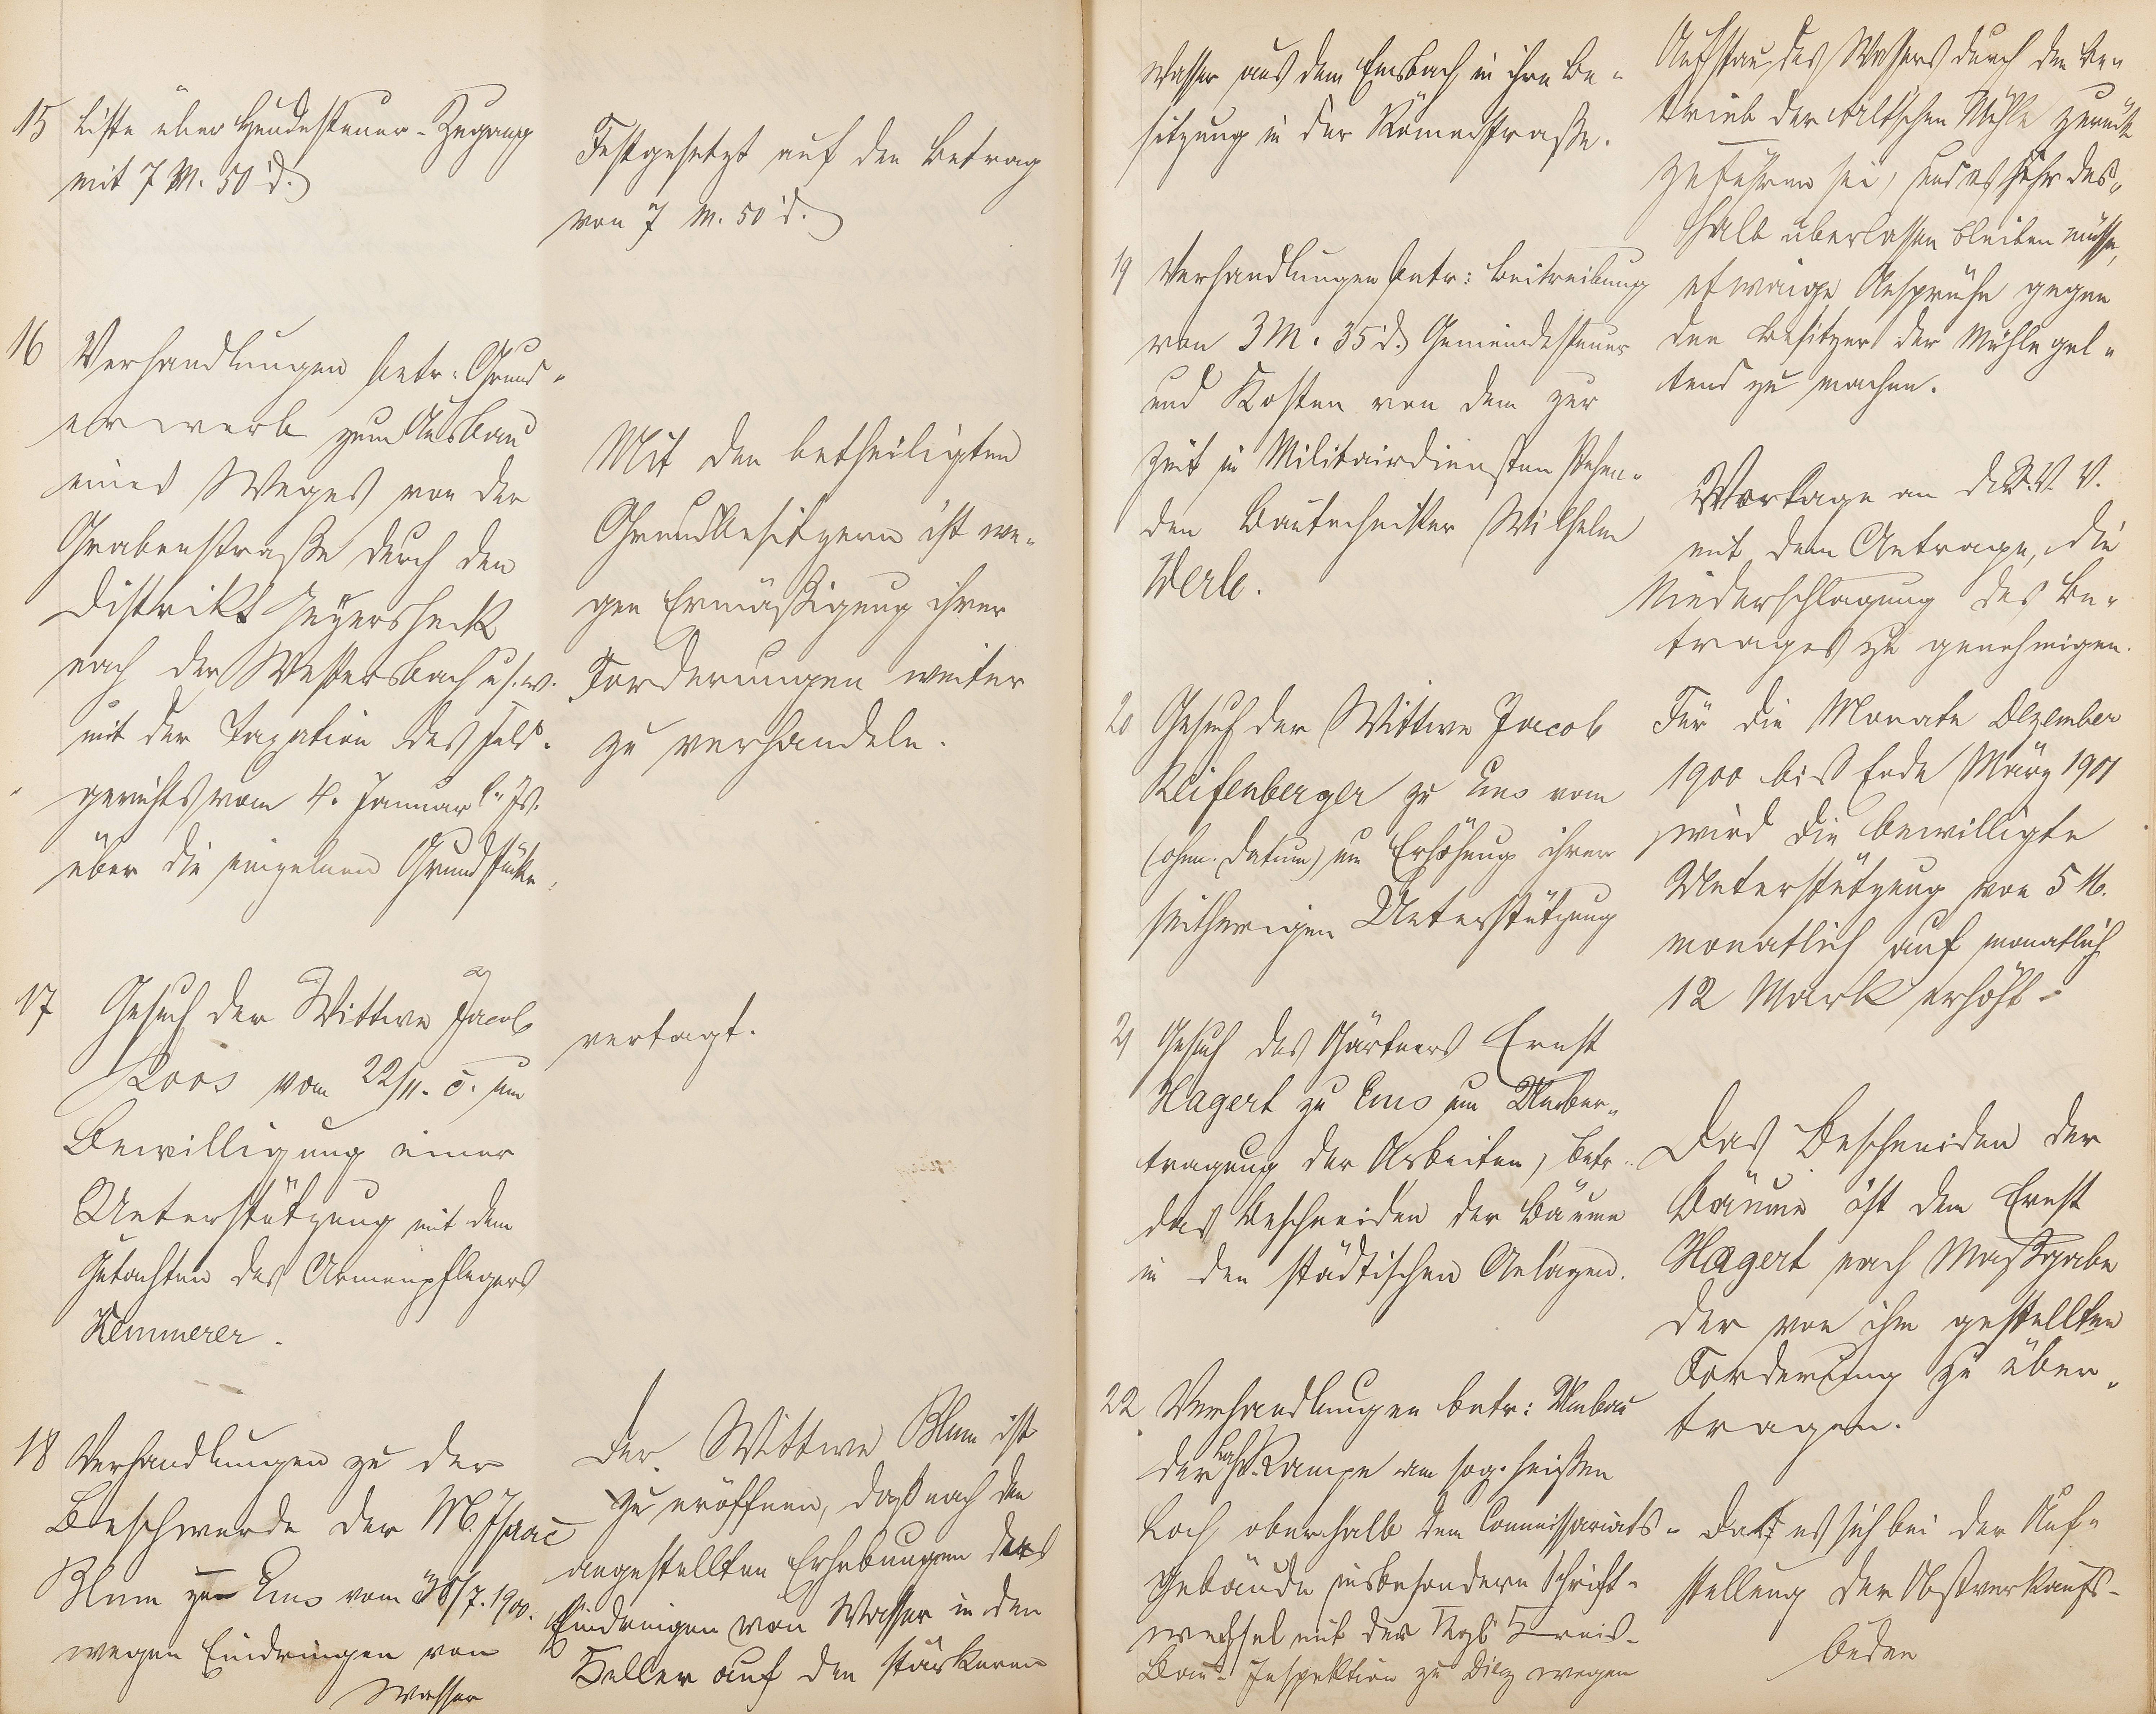 15 Liste über Hundesteuer-Zugang
mit 7 M. 50 d.
Festgesetzt auf den Betrag
von 7 M. 50 d.
16 Verhandlungen betr: Grund-
erwerb zum Ausbau
eines Weges von der
Grabenstraße durch den
Distrikt Heyersheck
nach der Westersbach u.s.w.
mit der Taxation des Feld-
gerichts vom 4. Januar l. Js.
über die einzelnen Grundstücke.
Mit den betheiligten
Grundbesitzern ist we-
gen Ermäßigung ihrer
Forderungen weiter
zu verhandeln.
17 Gesuch der Wittwe Jacob
Loos vom 22/11. c. um
Bewilligung einer
Unterstützung mit dem
Gutachten des Armenpflegers
Kemmerer.
vertagt.
18 Verhandlungen zu der
Beschwerde der M. Isaac
Blum zu Ems vom 30/7. 1900.
wegen Eindringen von
Wasser
Der Wittwe Blum ist
zu eröffnen, daß nach den
angestellten Erhebungen das
Eindringen von Wasser in den
Keller auf den stärkeren
Wasser aus dem Emsbach in ihre Be-
sitzung in der Römerstraße.
Aufstau des Wassers durch den Be-
trieb der Alt'schen Mühle zurück
zuführen sei, und es ihr des-
halb überlassen bleiben müsse,
etwaige Ansprüche gegen
den Besitzer der Mühle gel-
tend zu machen.
19 Verhandlungen betr: Beitreibung
von 3 M. 35 d. Gemeindesteuer
und Kosten von dem zur
Zeit in Militairdiensten stehen-
den Bautechniker Wilhelm
Werle.
Vorlage an d. St. V. V.
mit dem Antrage, die
Niederschlagung des Be-
trages zu genehmigen.
20 Gesuch der Wittwe Jacob
Reifenberger zu Ems vom
(ohne Datum) um Erhöhung ihrer
seitherigen Unterstützung
Für die Monate Dezember
1900 bis Ende März 1901
wird die bewilligte
Unterstützung von 5 M.
monatlich auf monatlich
12 Mark erhöht.
21 Gesuch des Gärtners Ernst
Hagert zu Ems um Ueber-
tragung der Arbeiten, betr.
das Beschneiden der Bäume
in den städtischen Anlagen.
Das Beschneiden der
Bäume ist dem Ernst
Hagert nach Maßgabe
der von ihm gestellten
Forderung zu über-
tragen.
22 Verhandlungen betr: Umbau
der Lahn-Rampe am sog. heißen
Loch oberhalb dem Commissariats-
gebäude insbesondere Schrift-
wechsel mit der Kgl. Kreis-
Bau-Inspektion zu Diez wegen
Daß es sich bei der Auf-
stellung der Obstverkaufs-
buden